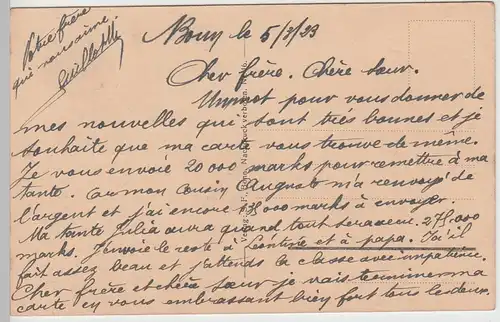 Votre frère
qui vous aime.
le 5/3/23
Cher frère. Chère Sœur.
Un mot pour vous donner de
mes nouvelles qui sont très bonnes et je
souhaite que ma carte vous trouve de même.
Je vous envoie 20 000 marks pour remettre à ma
tante. Car mon cousin Auguste m'a renvoyé de
l'argent et j'ai encore 000 marks à envoyer.
Ma tante Julia aura quand tout sera venu. 275.000
marks. J'envoie le reste à Léontine et à papa. Ici il
fait assez beau et j'attends la classe avec impatience.
Cher frère et chère sœur je vais terminer ma
carte en vous embrassant bien fort tous les deux.
Nachdruck verboten.